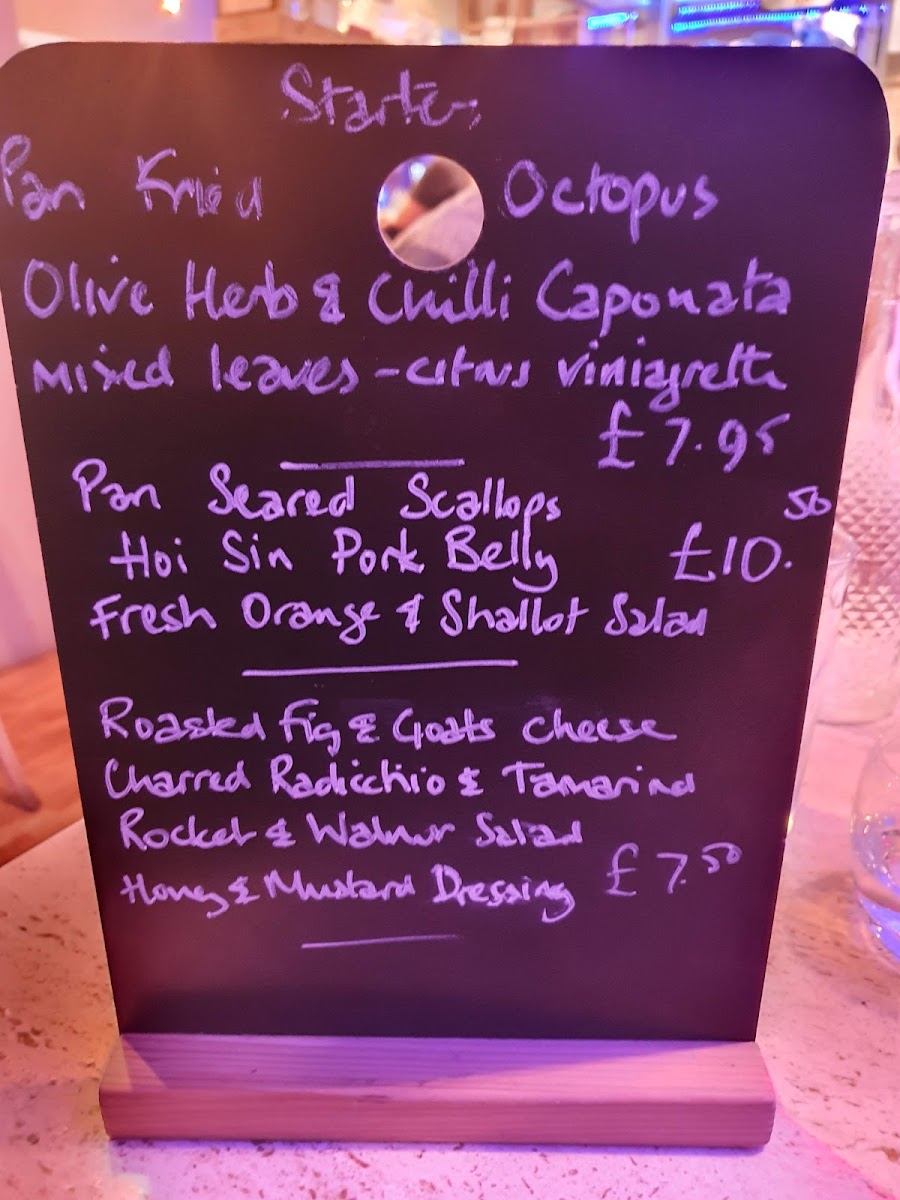 Starters
Pan Fried Octopus
Olive Herb & Chilli Caponata
Mixed leaves - citrus viniagrette
£7.95
Pan Seared Scallops
Hoi Sin Pork Belly £10.50
Fresh Orange & Shallot Salad
Roasted Fig & Goats cheese
Charred Radicchio & Tamarind
Rocket & Walnut Salad
Honey & Mustard Dressing £7.50